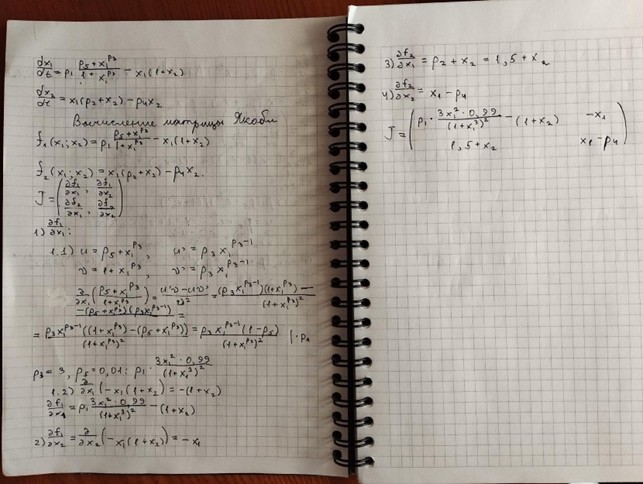 dx₁/dt = p₁ (p₅+x₁^p₃)/(1+x₁^p₃) − x₁(1+x₂)
dx₂/dt = x₁(p₂+x₂) − p₄x₂
Вычисление матрицы Якоби
f₁(x₁;x₂) = p₁ (p₅+x₁^p₃)/(1+x₁^p₃) − x₁(1+x₂)
f₂(x₁;x₂) = x₁(p₂+x₂) − p₄x₂.
J = (∂f₁/∂x₁, ∂f₁/∂x₂
∂f₂/∂x₁, ∂f₂/∂x₂)
1) ∂f₁/∂x₁:
1.1) u = p₅+x₁^p₃, u' = p₃x₁^(p₃−1)
v = 1+x₁^p₃, v' = p₃x₁^(p₃−1)
∂/∂x₁ ((p₅+x₁^p₃)/(1+x₁^p₃)) = (u'v−uv')/v² = ((p₃x₁^(p₃−1))(1+x₁^p₃) −
−(p₅+x₁^p₃)(p₃x₁^(p₃−1)))/(1+x₁^p₃)² =
= p₃x₁^(p₃−1)((1+x₁^p₃)−(p₅+x₁^p₃))/(1+x₁^p₃)² = p₃x₁^(p₃−1)(1−p₅)/(1+x₁^p₃)² | · p₁
p₃ = 3, p₅ = 0,01: p₁ · (3x₁² · 0,99)/(1+x₁³)²
1.2) ∂/∂x₁ (−x₁(1+x₂)) = −(1+x₂)
∂f₁/∂x₁ = p₁ (3x₁² · 0,99)/(1+x₁³)² − (1+x₂)
2) ∂f₁/∂x₂ = ∂/∂x₂ (−x₁(1+x₂)) = −x₁
3) ∂f₂/∂x₁ = p₂ + x₂ = 1,5 + x₂
4) ∂f₂/∂x₂ = x₁ − p₄
J = (p₁ · (3x₁² · 0,99)/(1+x₁³)² − (1+x₂) −x₁
1,5 + x₂ x₁ − p₄)